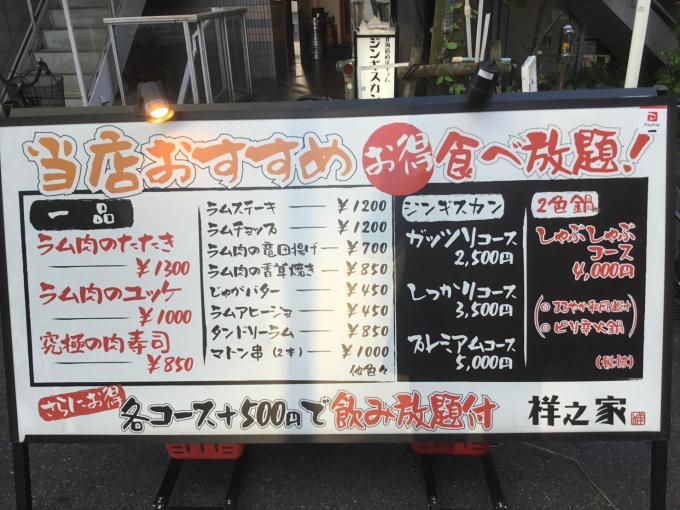 ジンギスカン
PayPay
当店おすすめ お得 食べ放題!
一品
ラム肉のたたき
¥1300
ラム肉のユッケ
¥1000
究極の肉寿司
¥850
ラムステーキ ¥1200
ラムチョップ ¥1200
ラム肉の竜田揚げ ¥700
ラム肉の香草焼き ¥850
じゃがバター ¥450
ラムアヒージョ ¥450
タンドリーラム ¥850
マトン串(2本) ¥1000
他色々
ジンギスカン
ガッツリコース
2,500円
しっかりコース
3,500円
プレミアムコース
5,000円
2色鍋
しゃぶしゃぶ
コース
4,000円
ピリ辛火鍋
(税抜)
さらにお得 各コース+500円で飲み放題付 祥之家